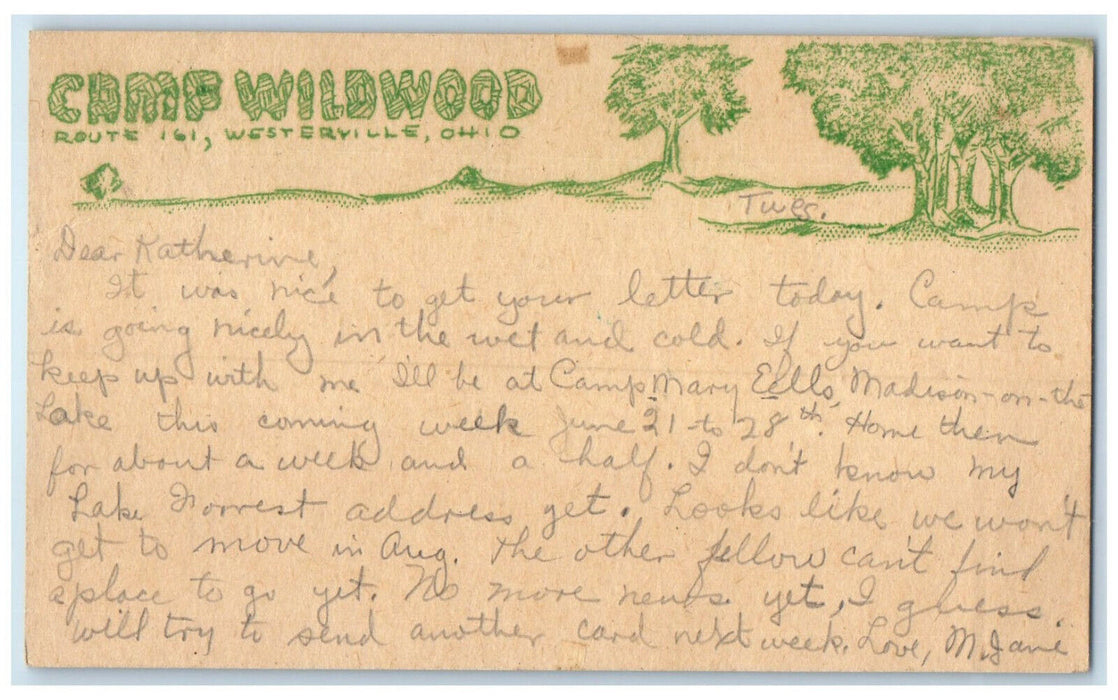 CAMP WILDWOOD
ROUTE 161, WESTERVILLE, OHIO
Tues.
Dear Katherine,
It was nice to get your letter today. Camp
is going nicely in the wet and cold. If you want to
keep up with me I'll be at Camp Mary Eells, Madison-on-the
Lake this coming week June 21 to 28th. Home then
for about a week and a half. I don't know my
Lake Forrest address yet. Looks like we won't
get to move in Aug. The other fellow can't find
a place to go yet. No more news yet, I guess.
will try to send another card next week. Love, M. Jane